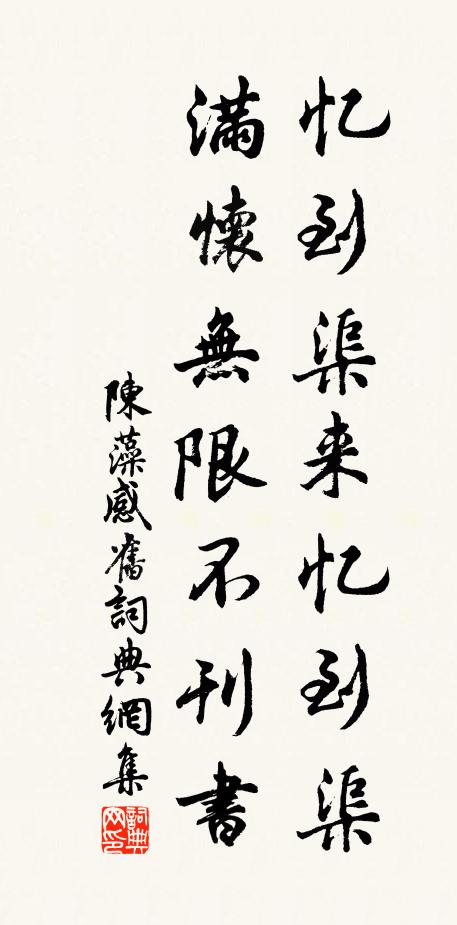 忆到渠来忆到渠
满懷無限不刊書
陳藻感舊詞典網集
詞典網印